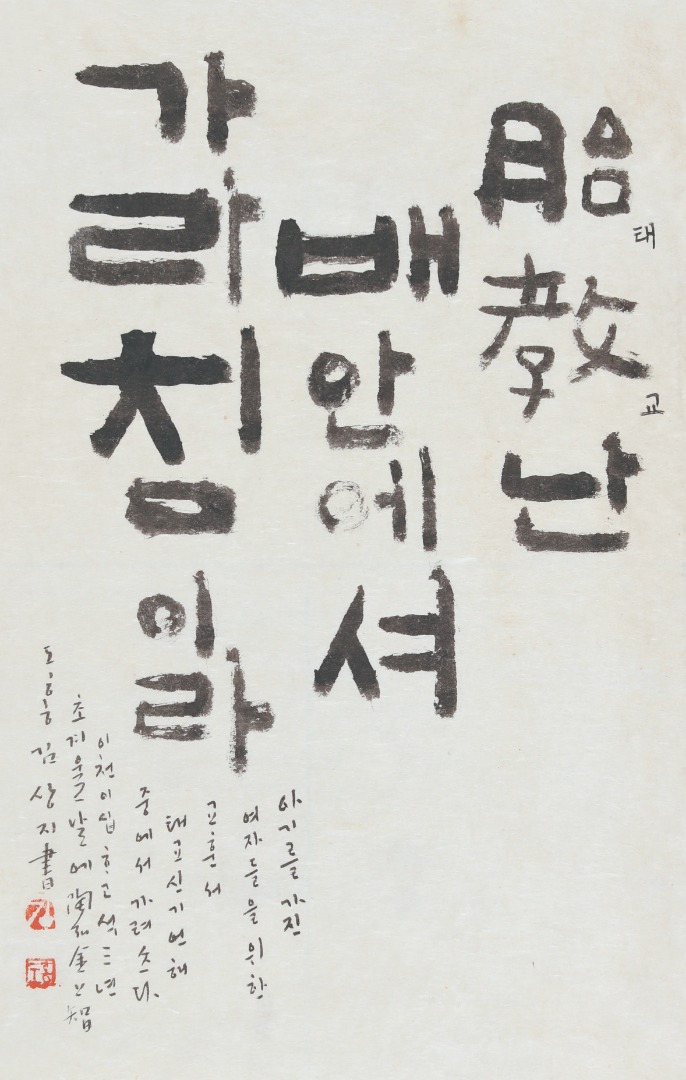 胎教난
태
교
배안에셔
가라침이라
아기를 가진
여자들을 위한
교훈서
태교신기언해
중에서 가려 쓰다.
이천이십 하고 석 三 년
초겨울 날에 陶弘 金上智
도홍 김상지 書